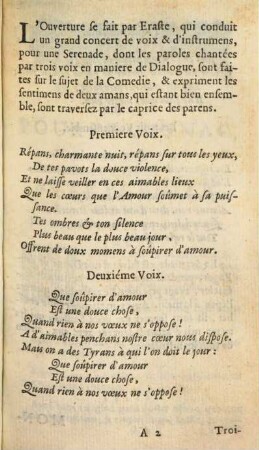 L'Ouverture se fait par Eraste, qui conduit
un grand concert de voix & d'instrumens,
pour une Serenade, dont les paroles chantées
par trois voix en maniere de Dialogue, sont fai-
tes sur le sujet de la Comedie, & expriment les
sentimens de deux amans, qui estant bien ensem-
ble, sont traversez par le caprice des parens.
Premiere Voix.
Répans, charmante nuit, répans sur tous les yeux,
De tes pavots la douce violence,
Et ne laisse veiller en ces aimables lieux
Que les cœurs que l'Amour soûmet à sa puis-
sance.
Tes ombres & ton silence
Plus beau que le plus beau jour,
Offrent de doux momens à soûpirer d'amour.
Deuxiéme Voix.
Que soûpirer d'amour
Est une douce chose,
Quand rien à nos vœux ne s'oppose!
A d'aimables penchans nostre cœur nous dispose.
Mais on a des Tyrans à qui l'on doit le jour:
Que soûpirer d'amour
Est une douce chose,
Quand rien à nos vœux ne s'oppose!
A 2 Troi-